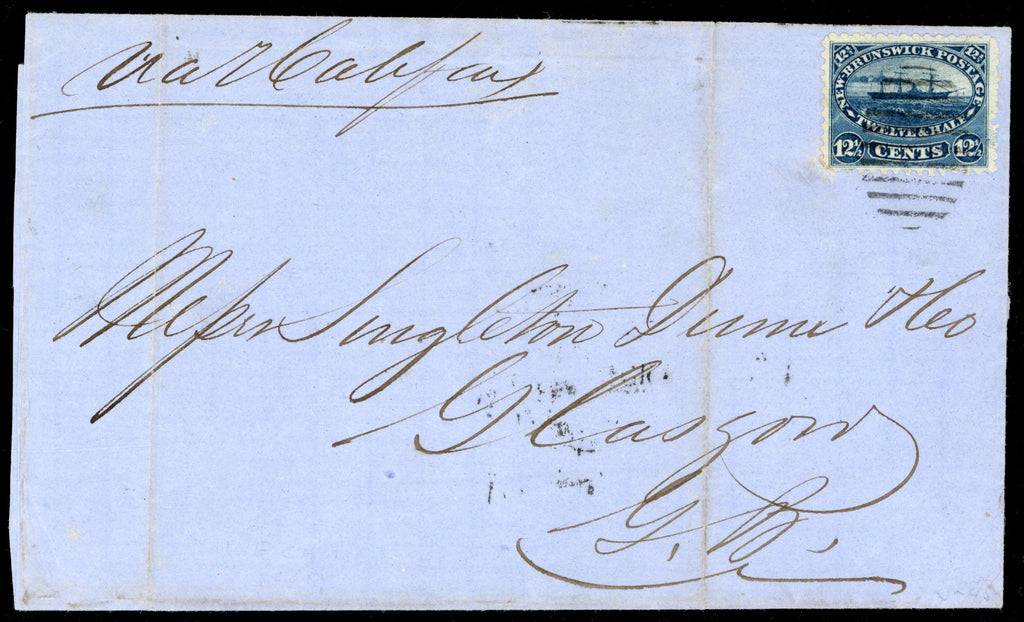 via Halifax
12½ 12½
NEW-BRUNSWICK POSTAGE
TWELVE & HALF
12½ CENTS 12½
Messrs Singleton Dunn & Co
Glasgow
G. B.